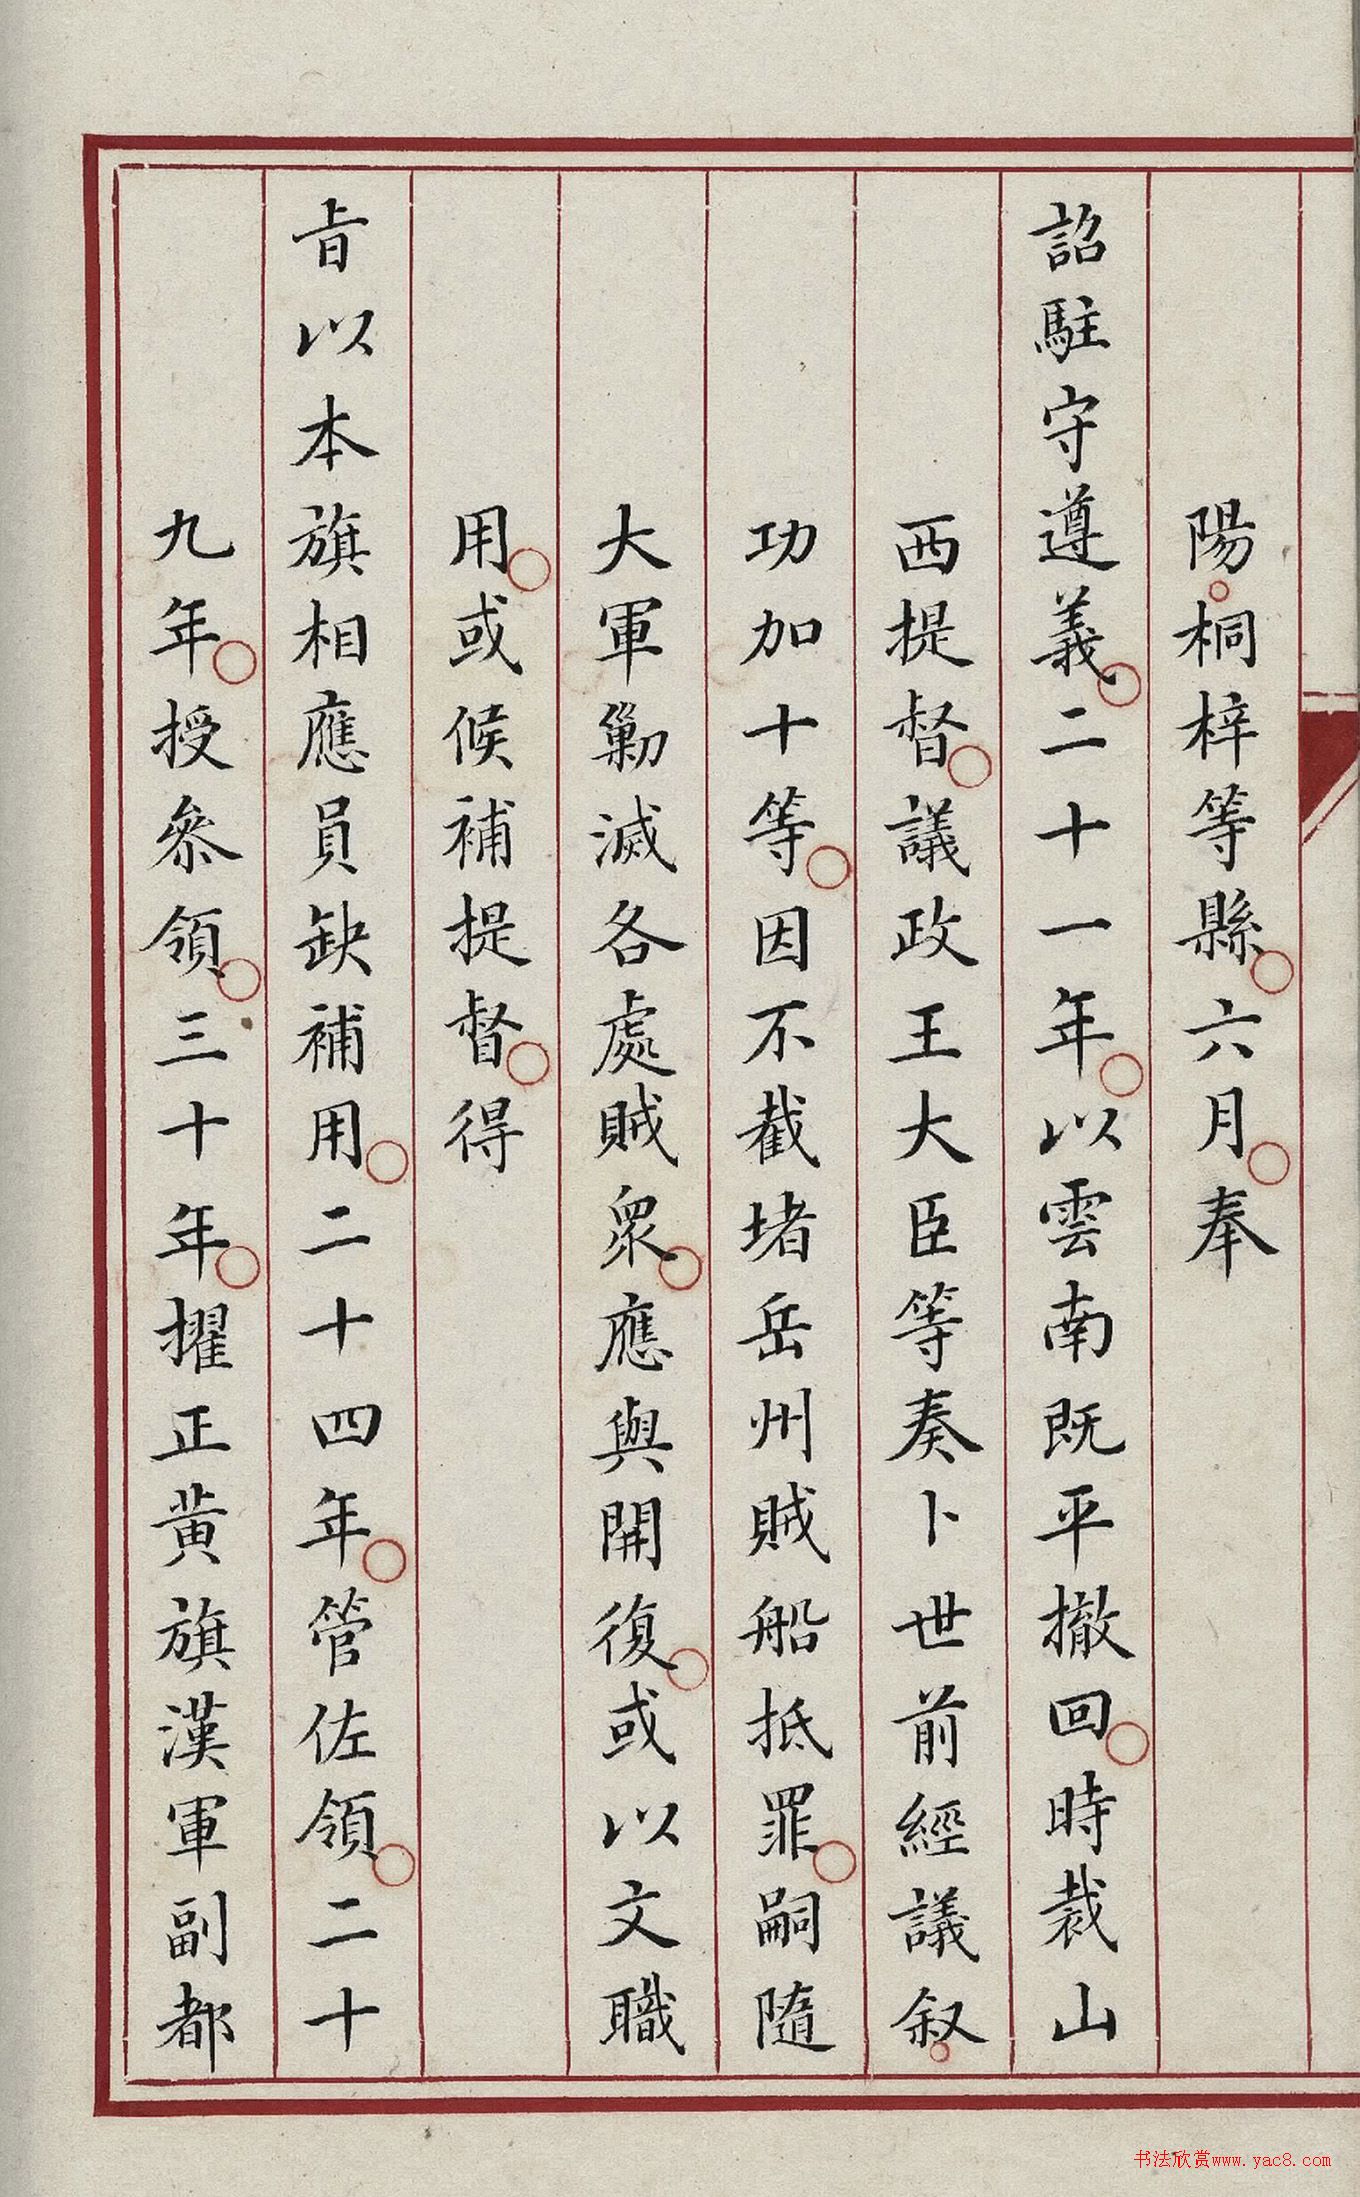 陽桐梓等縣六月奉
詔駐守遵義二十一年以雲南既平撤回時裁山
西提督議政王大臣等奏卜世前經議叙
功加十等因不截堵岳州賊船抵罪嗣隨
大軍勦滅各處賊衆應與開復或以文職
用或候補提督得
旨以本旗相應員缺補用二十四年管佐領二十
九年授叅領三十年擢正黄旗漢軍副都
书法欣赏www.yac8.com